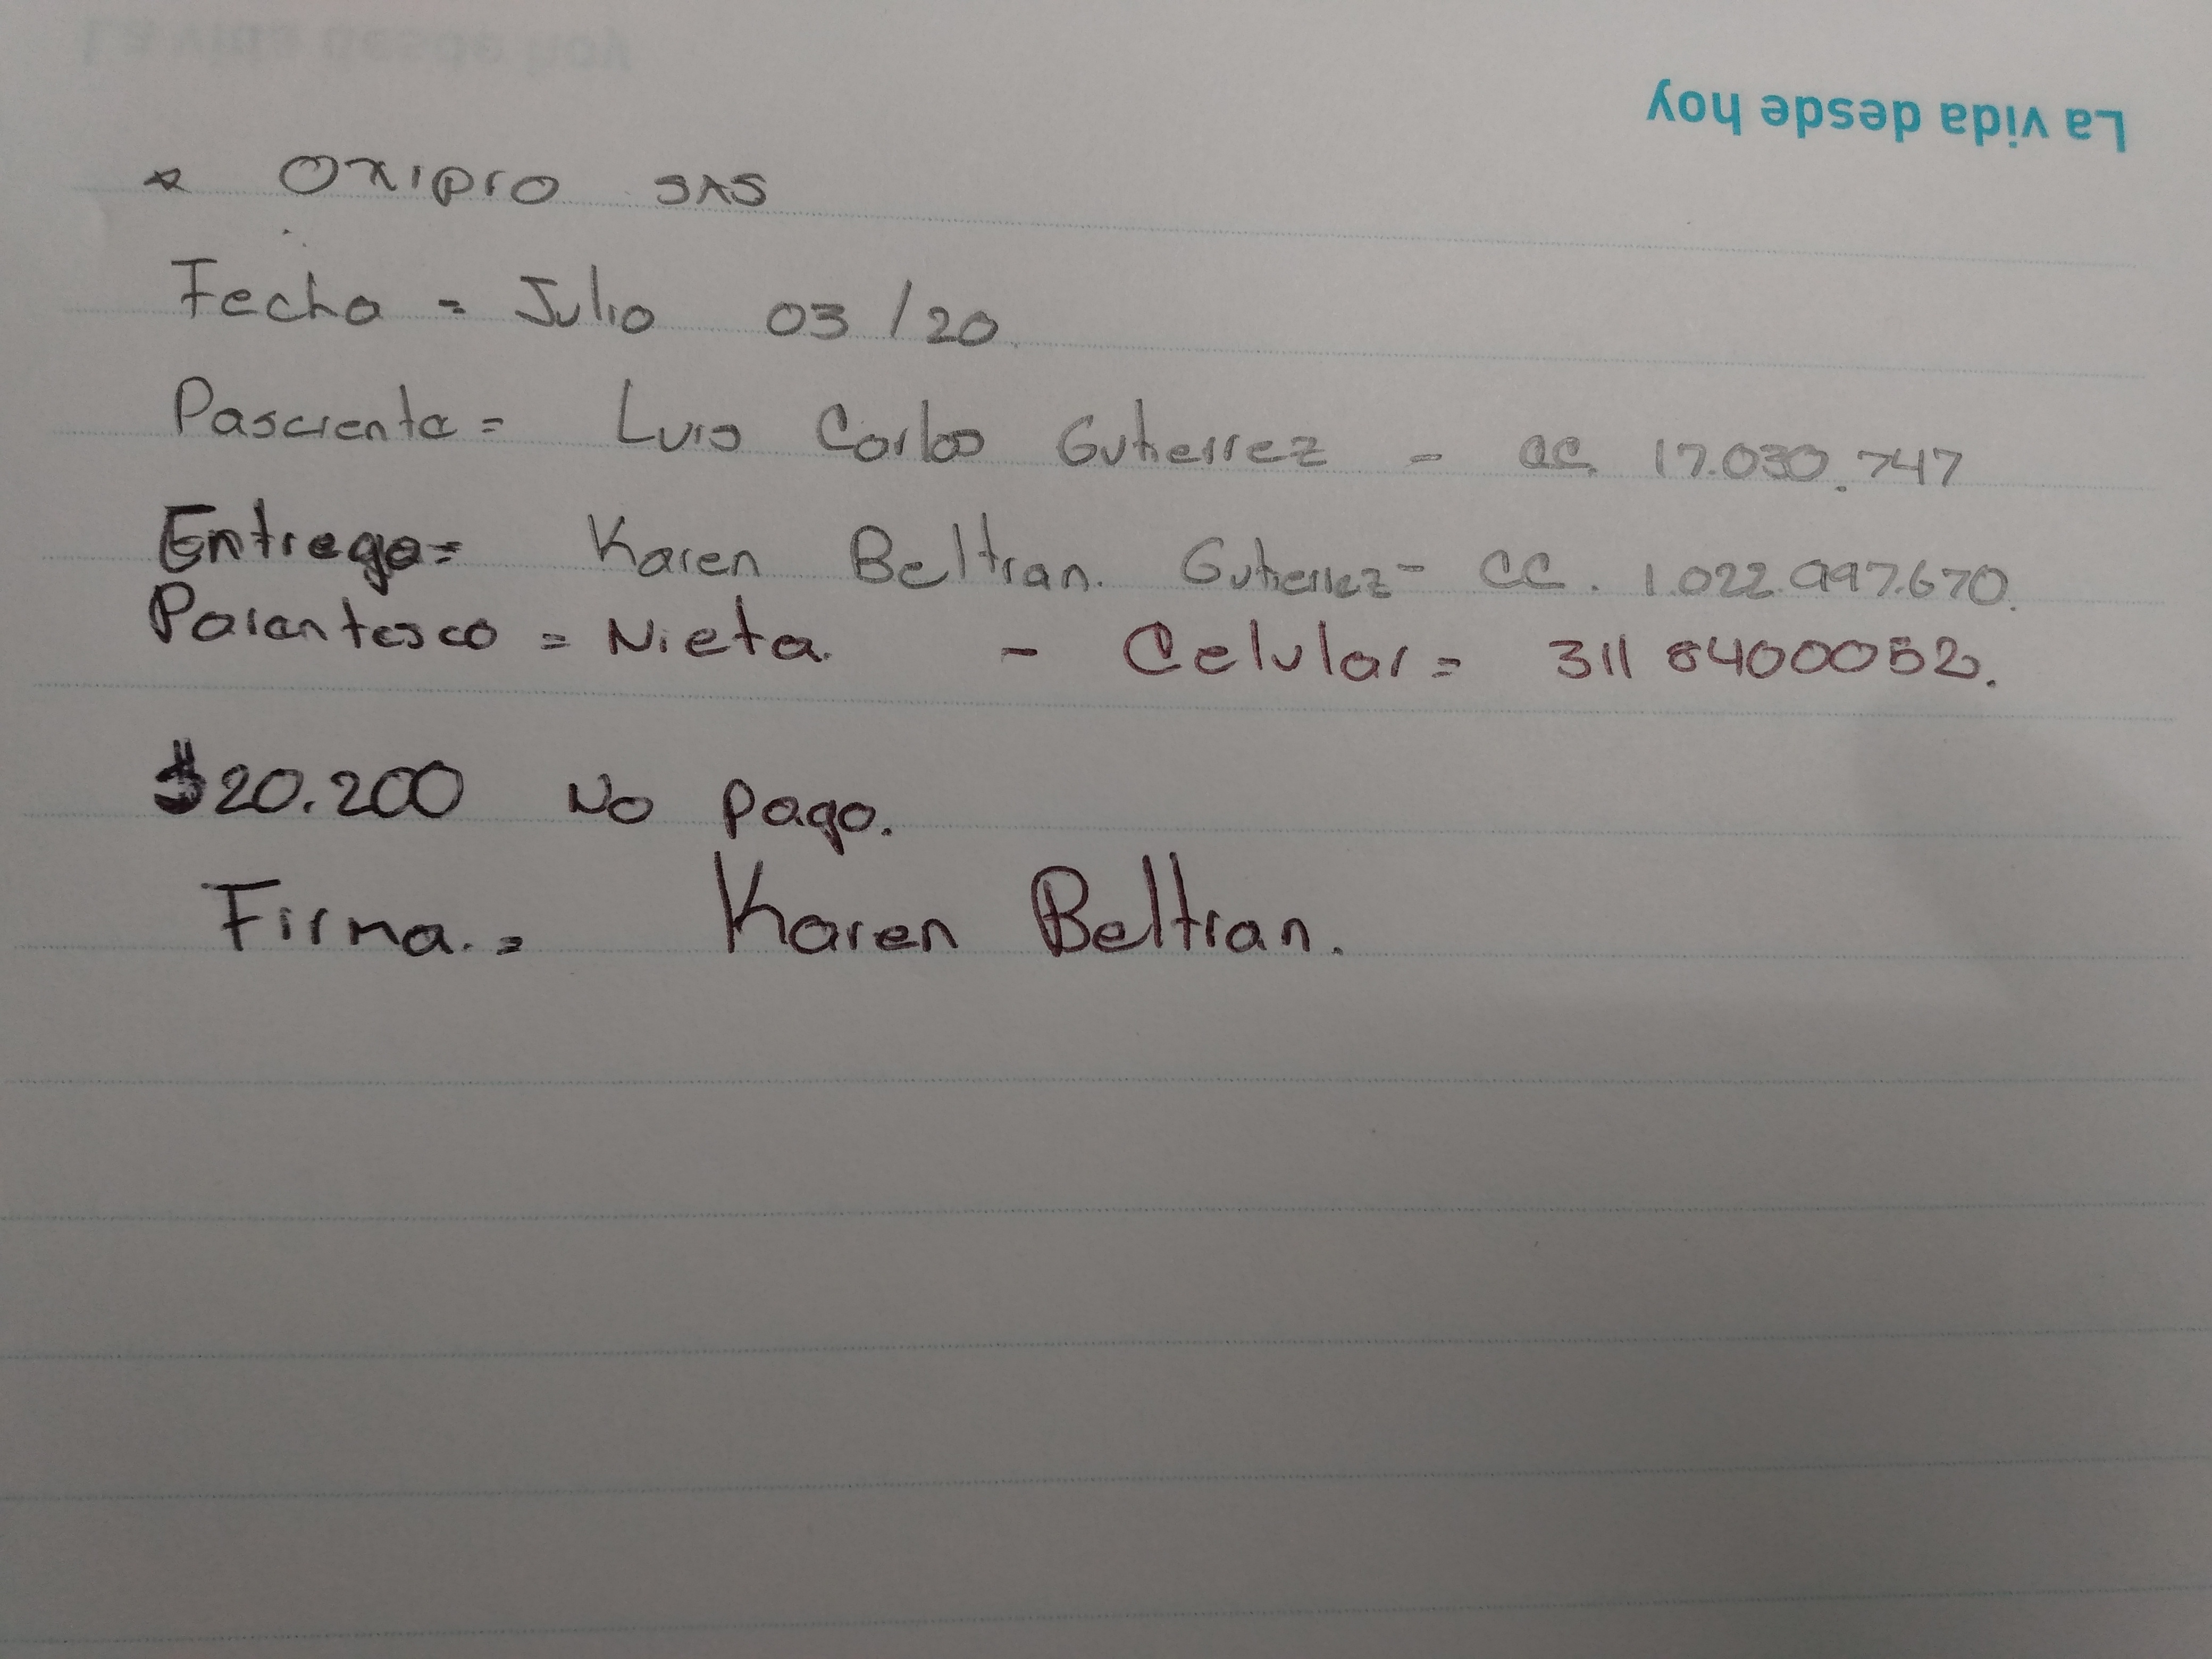 La vida desde hoy
* Oxipro SAS
Fecha = Julio 03/20.
Pasciente = Luis Carlos Gutierrez - CC. 17.030.747
Entrega = Karen Beltran. Gutierrez - CC. 1.022.997.670.
Parentesco = Nieta. - Celular = 311 8400052.
$20.200 No pago.
Firma. = Karen Beltran.